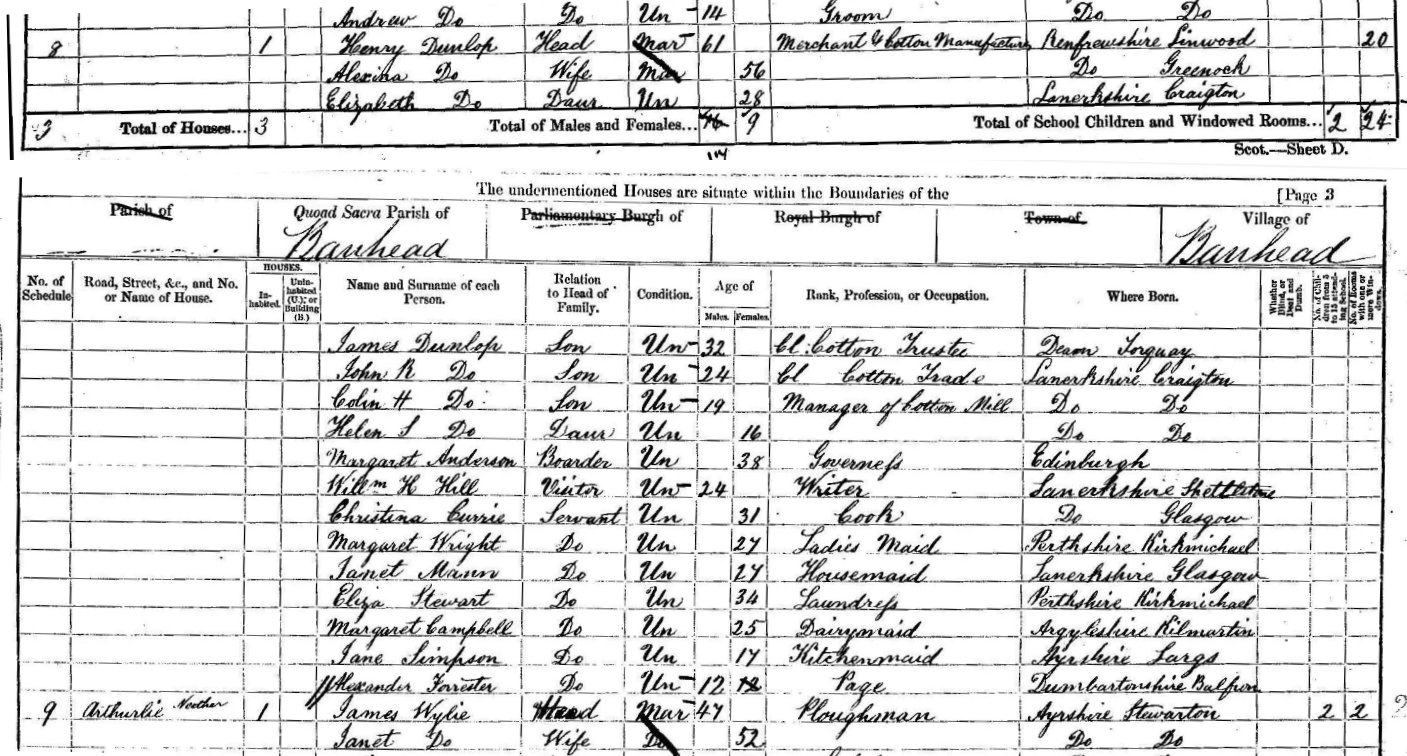 Andrew Do Do Un 14 Groom Do Do
8 1 Henry Dunlop Head Mar 61 Merchant & Cotton Manufacturer Renfrewshire Linwood 20
Alexina Do Wife Mar 56 Do Greenock
Elizabeth Do Daur Un 28 Lanerkshire Craigton
3 Total of Houses... 3 Total of Males and Females... 16 9 Total of School Children and Windowed Rooms... 2 24
14
Scot.—Sheet D.
The undermentioned Houses are situate within the Boundaries of the [Page 3
Parish of Quoad Sacra Parish of Parliamentary Burgh of Royal Burgh of Town of Village of
Barrhead Barrhead
No. of Schedule Road, Street, &c., and No. or Name of House. HOUSES. Inhabited. Uninhabited (U.); or Building (B.) Name and Surname of each Person. Relation to Head of Family. Condition. Age of Males. Females. Rank, Profession, or Occupation. Where Born. Whether Blind, or Deaf and Dumb. No. of Children from 5 to 15 attending School. No. of Rooms with one or more Windows.
James Dunlop Son Un 32 Cl. Cotton Trustee Devon Torquay
John R Do Son Un 24 Cl Cotton Trade Lanerkshire Craigton
Colin H Do Son Un 19 Manager of Cotton Mill Do Do
Helen S Do Daur Un 16 Do Do
Margaret Anderson Boarder Un 38 Governess Edinburgh
Willm H Hill Visitor Un 24 Writer Lanerkshire Shettlestone
Christina Currie Servant Un 31 Cook Do Glasgow
Margaret Wright Do Un 27 Ladies Maid Perthshire Kirkmichael
Janet Mann Do Un 27 Housemaid Lanerkshire Glasgow
Eliza Stewart Do Un 34 Laundress Perthshire Kirkmichael
Margaret Campbell Do Un 25 Dairymaid Argyleshire Kilmartin
Jane Simpson Do Un 17 Kitchenmaid Ayrshire Largs
Alexander Forrester Do Un 12 12 Page Dumbartonshire Balfron
9 Arthurlie Neather 1 James Wylie Head Mar 47 Ploughman Ayrshire Stewarton 2 2
Janet Do Wife Do 52 Do Do